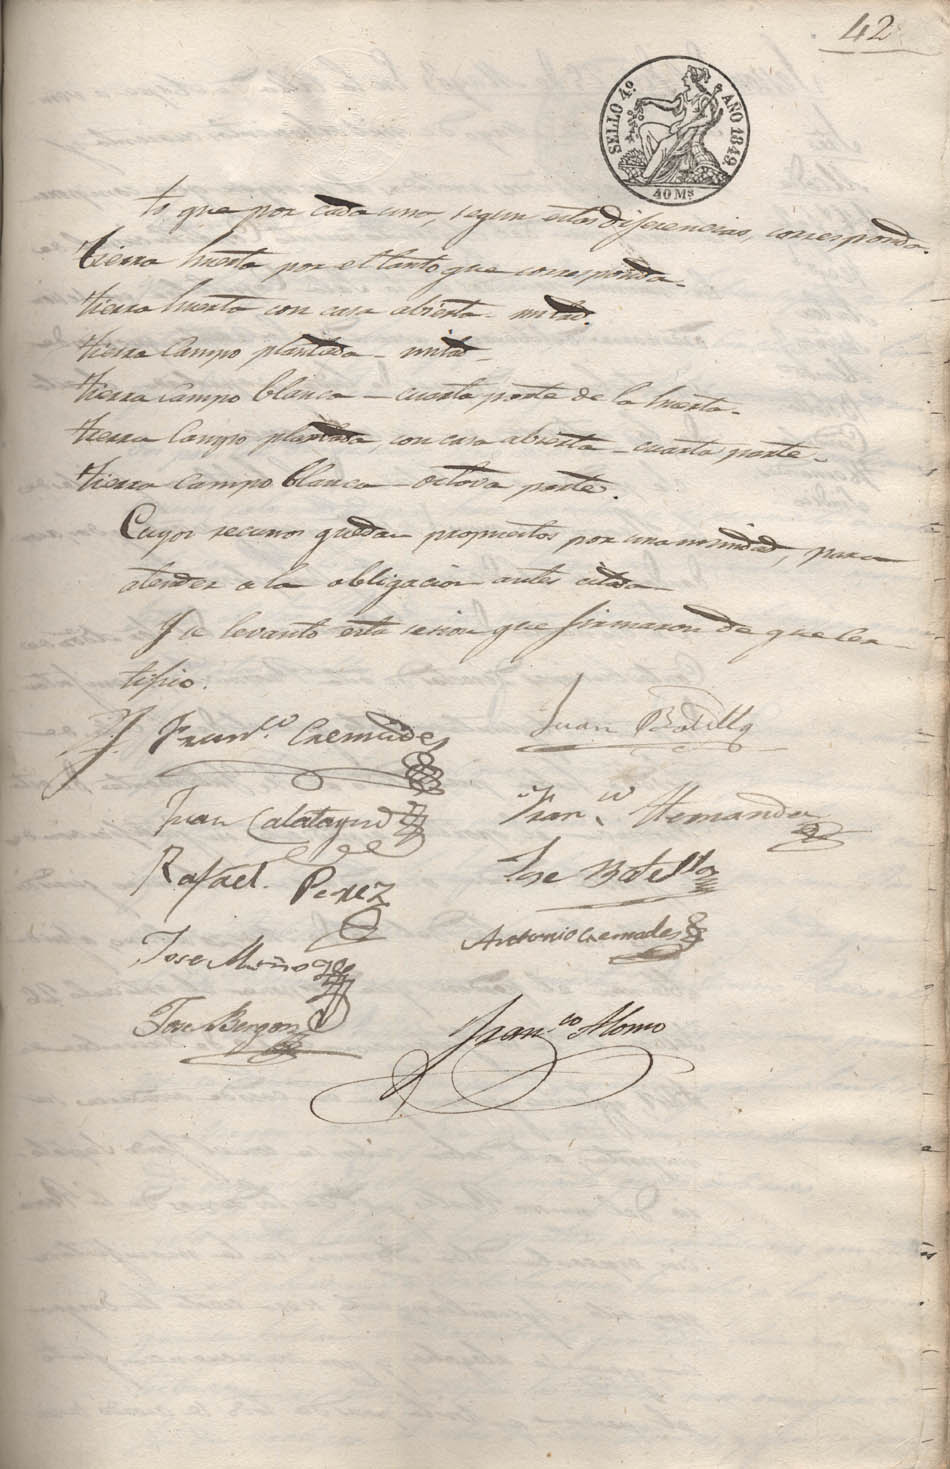 42
SELLO 4º AÑO 1849
40 Ms
to que por cada uno, segun estas diferencias, corresponda.
tierra huerta por el tanto que corresponda.
tierra huerta con casa abierta - mitad.
tierra Campo plantada - mitad -
tierra campo blanca - cuarta parte de la huerta.
tierra Campo plantada, con casa abierta - cuarta parte -
tierra Campo blanca - octava parte.
Cuyos recursos quedan propuestos por unanimidad, para
atender a la obligacion antes citada
Y se levantó esta sesion que firmaron de que cer-
tifico.
Franco Cremades
Juan Botella
Juan Calatayud
Franco Hernandez
Rafael Perez
Jose Botella
Antonio Cremades
Jose
Jose
Franco Alonso